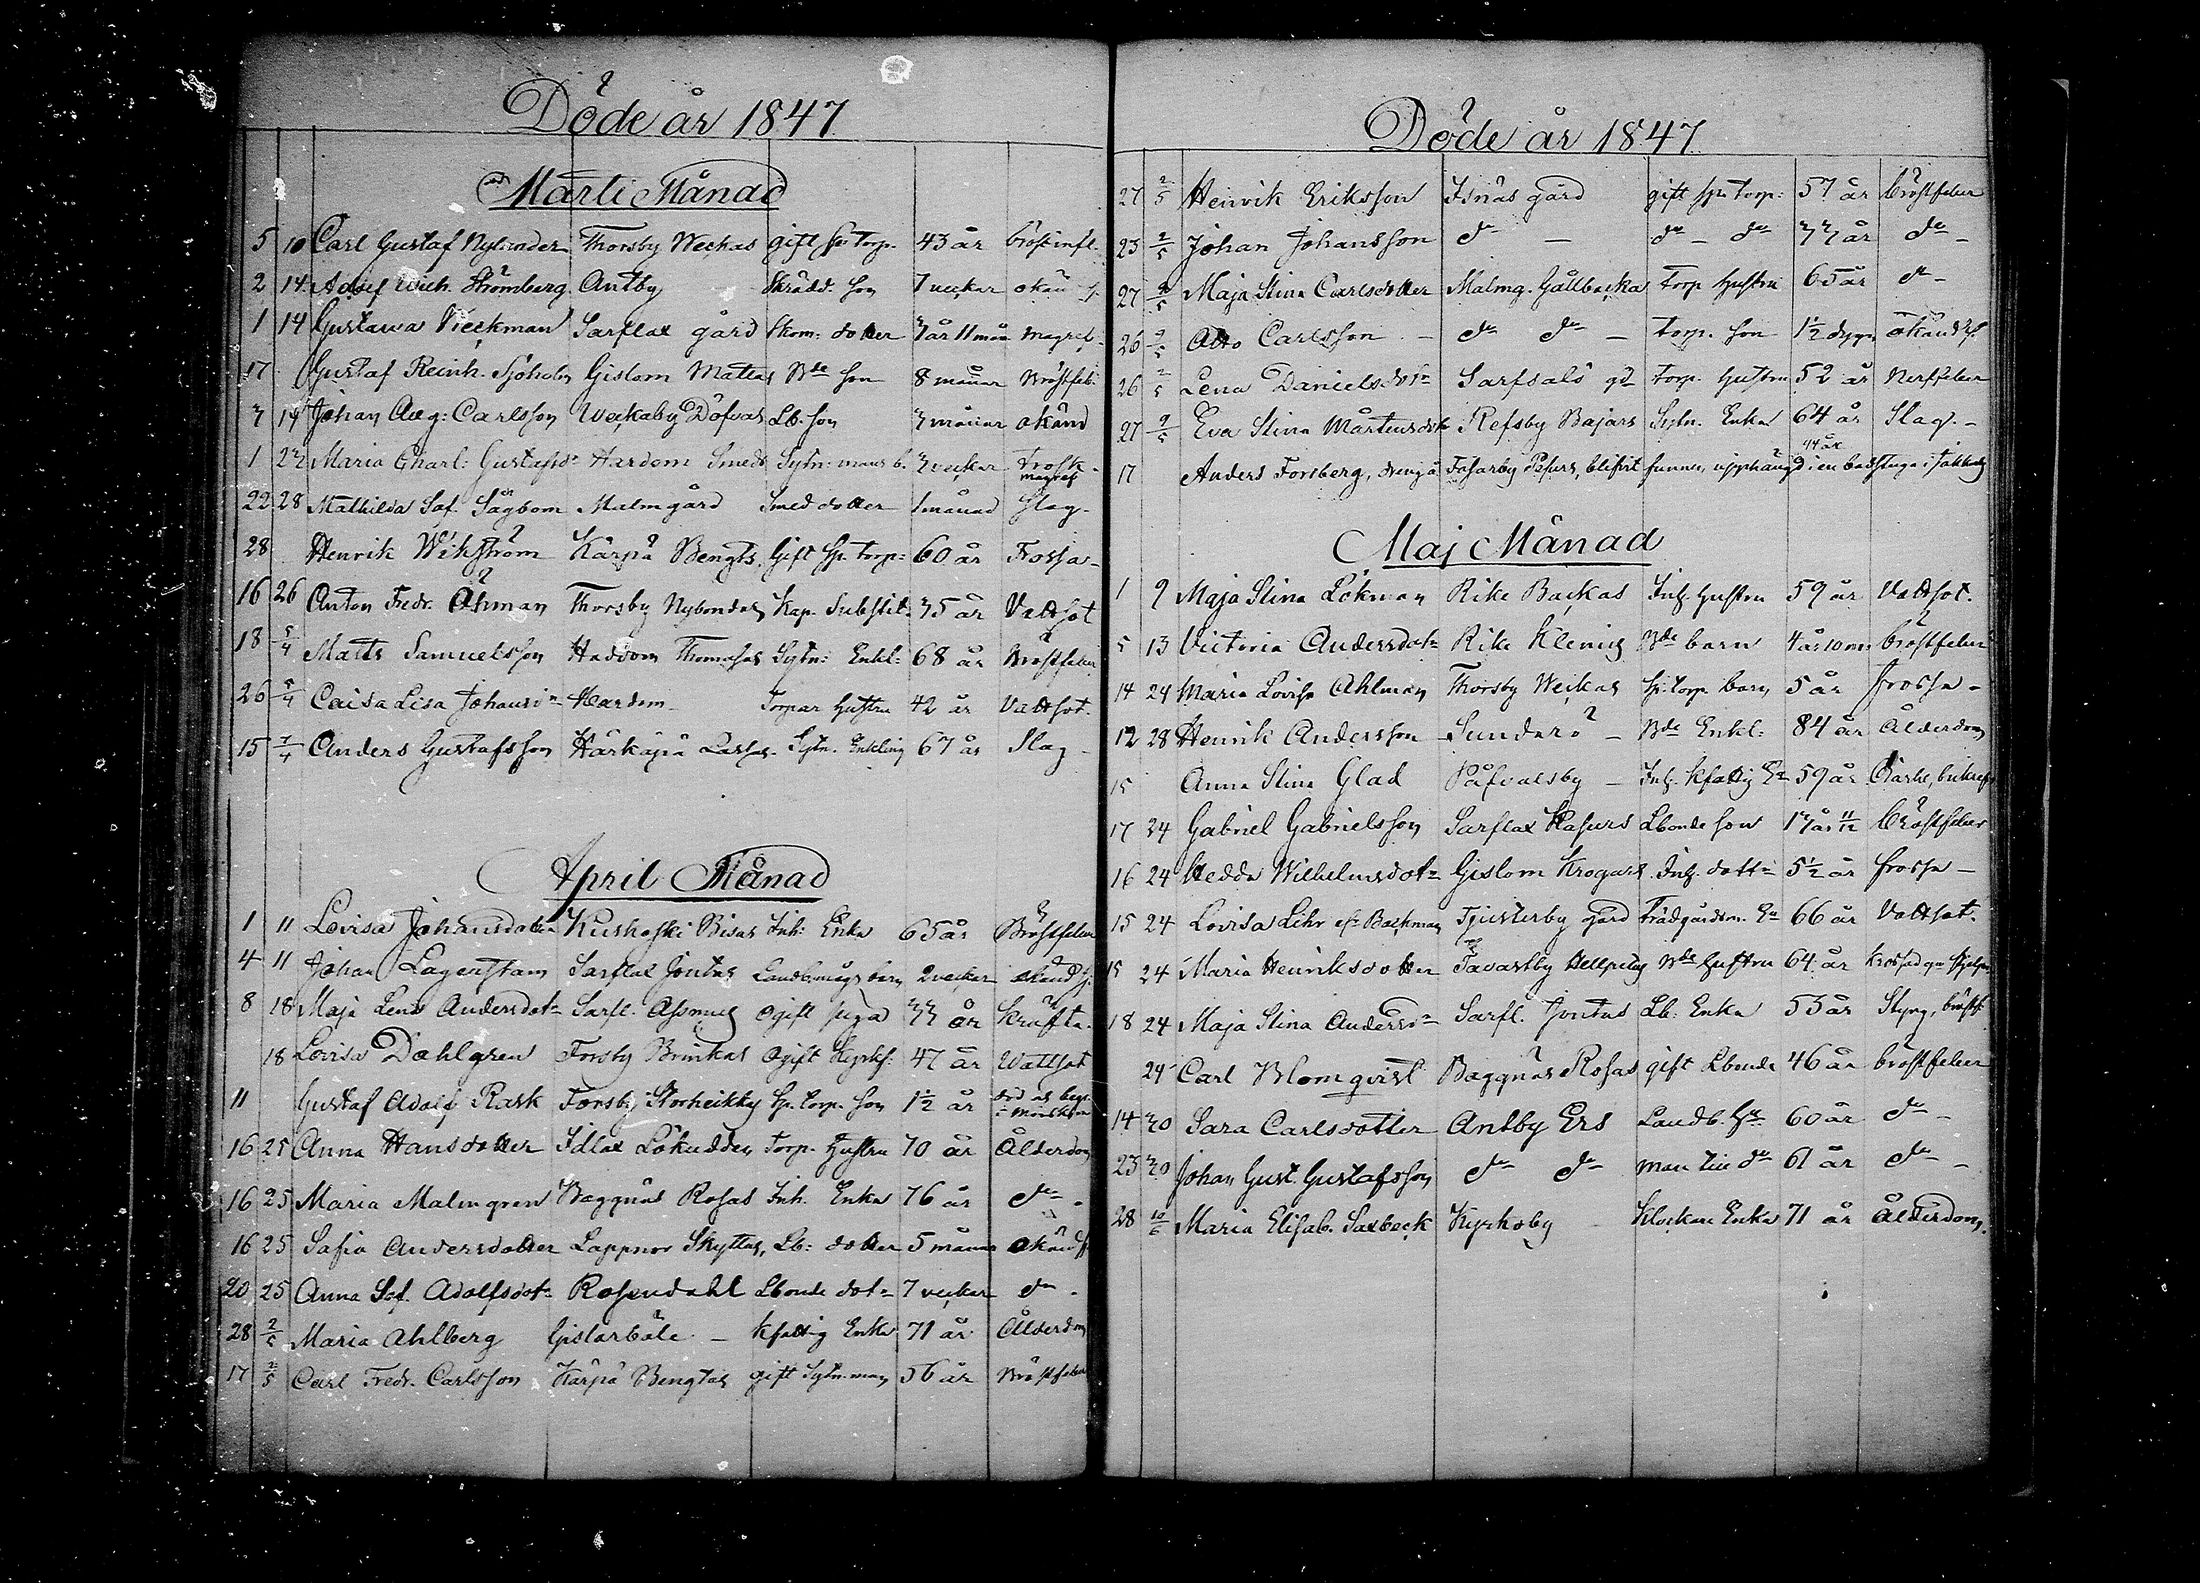 Döde år 1847
Marti Månad
5 10 Carl Gustaf Nylander Thorsby Weckas gift sp. torp. 43 år bröstinfl.
2 14 Adolf Wilh. Strömberg Antby Skrädd. son 7 veckor okän s.
1 14 Gustava Vieckman Sarflax gård Skom: dotter 7 år 11 mån magref.
17 Gustaf Reinh. Sjöholm Gislom Mattas Bde son 8 månar Bröstfeb.
7 14 Johan Aug: Carlsson Weckaby Döfvas Lb. son 7 månar okänd
1 27 Maria Charl: Gustafsdr Hardom Smeds Sytn: mans b. 7 veckor Trosk magref
22 28 Mathilda Sof. Sågbom Malmgård Smed dotter 1 månad Slag.
28 Henrik Wikström Kärpä Bengts Gift Sp. torp: 60 år Frossa
16 26 Anton Fredr. Öhman Thorsby Nybondas Kap. Substit. 75 år Vattsot
18 5/4 Matts Samuelsson Haddom Thomasas Sytn: Enkl: 68 år Bröstfeber
26 5/4 Caisa Lisa Johansdr Hardom Torpar hustru 42 år Vattsot.
15 7/4 Anders Gustafsson Härkäpä Lassas Sytn. Enkling 67 år Slag
April Månad
1 11 Lovisa Johansdotter Kuskoski Bisas Inh: Enka 65 år Bröstfeber
4 11 Johan Lagerstam Sarflax Jontas Landbmågs barn 2 veckor okänd s.
8 18 Maja Lena Andersdotr Sarfl. Assmus ogift piga 77 år Kräfta
18 Lovisa Dahlgren Forsby Brinkas ogift 47 år Wattsot
11 Gustaf Adolf Rask Forsby Storheikky Sp. torp. son 1½ år
16 25 Anna Hansdotter Idlax Lökudden Torp. hustru 70 år Ålderdom
16 25 Maria Malmgren Baggnäs Rosas Inh. Enka 76 år do
16 25 Sofia Andersdotter Lappnor Skyttas, Lb: dotter 5 månar okänd s.
20 25 Anna Sof. Adolfsdotr Rosendahl Lbonde dotr 7 veckor do
28 2/5 Maria Ahlberg Gislarböle – kfattig Enka 71 år Ålderdom
17 2/5 Carl Fredr. Carlsson Kärpä Bengtas gift Sytn. man 56 år Bröstfeber
Döde år 1847
27 2/5 Henrik Eriksson Isnäs gård gift sp. torp: 57 år bröstfeber
23 2/5 Johan Johansson do – do – do 77 år do –
27 2/5 Maja Stina Carlsdotter Malmg. Gällbacka Torp hustru 65 år do –
26 2/5 Otto Carlsson – do do – torp. son 1½ dygn okänd s.
26 2/5 Lena Danielsdotr Sarfsalö gd torp. hustru 52 år Nerffeber
27 9/5 Eva Stina Mårtensdotr Refsby Bajars Sytn. Enka 64 år Slag. –
44 år
17 Anders Forsberg, dreng å Fasarby Pesurs, blifvit funnen upphängd i en badstuga i
Maj Månad
1 9 Maja Stina Lökman Rike Backas Inh. hustru 59 år Vattsot.
5 13 Victoria Andersdotr Rike Klemis Bde barn 4 år 10 m: bröstfeber
14 24 Maria Lovisa Ahlman Thorsby Weckas sp. torp barn 5 år frossa –
12 28 Henrik Andersson Sundarö – Bde Enkl: 84 år Ålderdom
15 Anna Stina Glad Påfvalsby – Inh. kfattig Ea 59 år
17 24 Gabriel Gabrielsson Sarflax Kasurs Lbonde son 17 år 11/12 bröstfeber
16 24 Hedda Wilhelmsdotr Gislom Krogars Inh. dottr 5½ år frossa –
15 24 Lovisa Lihr ef. Backman Tjusterby gård trädgårdsm. Ea 66 år Vattsot.
15 24 Maria Henriksdotter Tavastby Bde hustru 64 år
18 24 Maja Stina Andersdr Sarfl. Jontas Lb: Enka 53 år Styng, bröstf.
24 Carl Blomqvist Baggnäs Rosas gift Lbonde 46 år bröstfeber
14 30 Sara Carlsdotter Antby Ers Landb. hu 60 år do –
23 30 Johan Gust. Gustafsson do do man till do 61 år do –
28 10/6 Maria Elisab. Saxbeck Kyrkoby Klockare Enka 71 år Ålderdom.